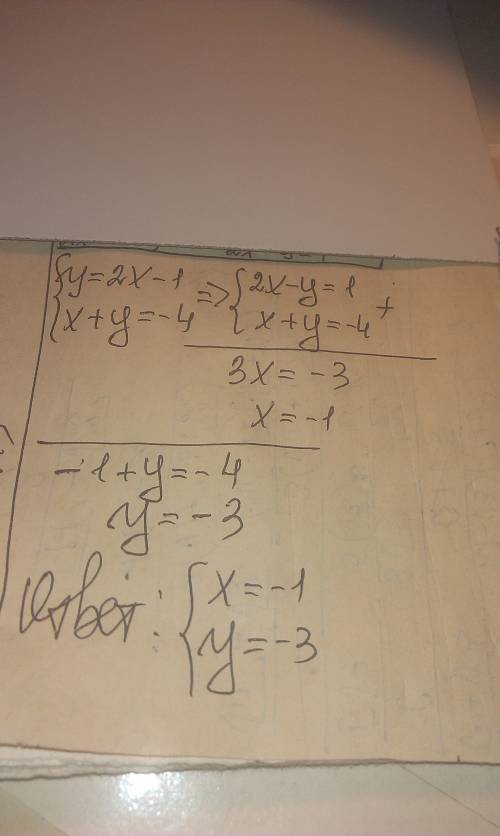 {y=2x-1 => {2x-y=1 +
{x+y=-4 {x+y=-4
3x=-3
x=-1
-1+y=-4
y=-3
Ответ: {x=-1
{y=-3